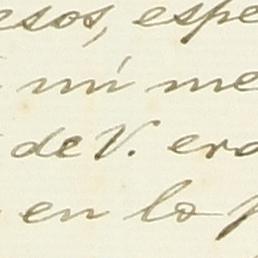 esos, espe
mi me
de V. era
en lo p